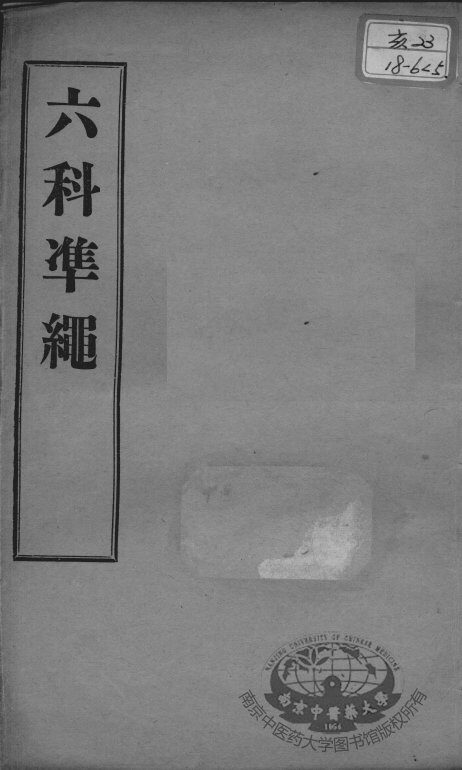 六科準繩
亥23
18-625
NANJING UNIVERSITY OF CHINESE MEDICINE
南京中醫藥大學
1954
南京中医药大学图书馆版权所有